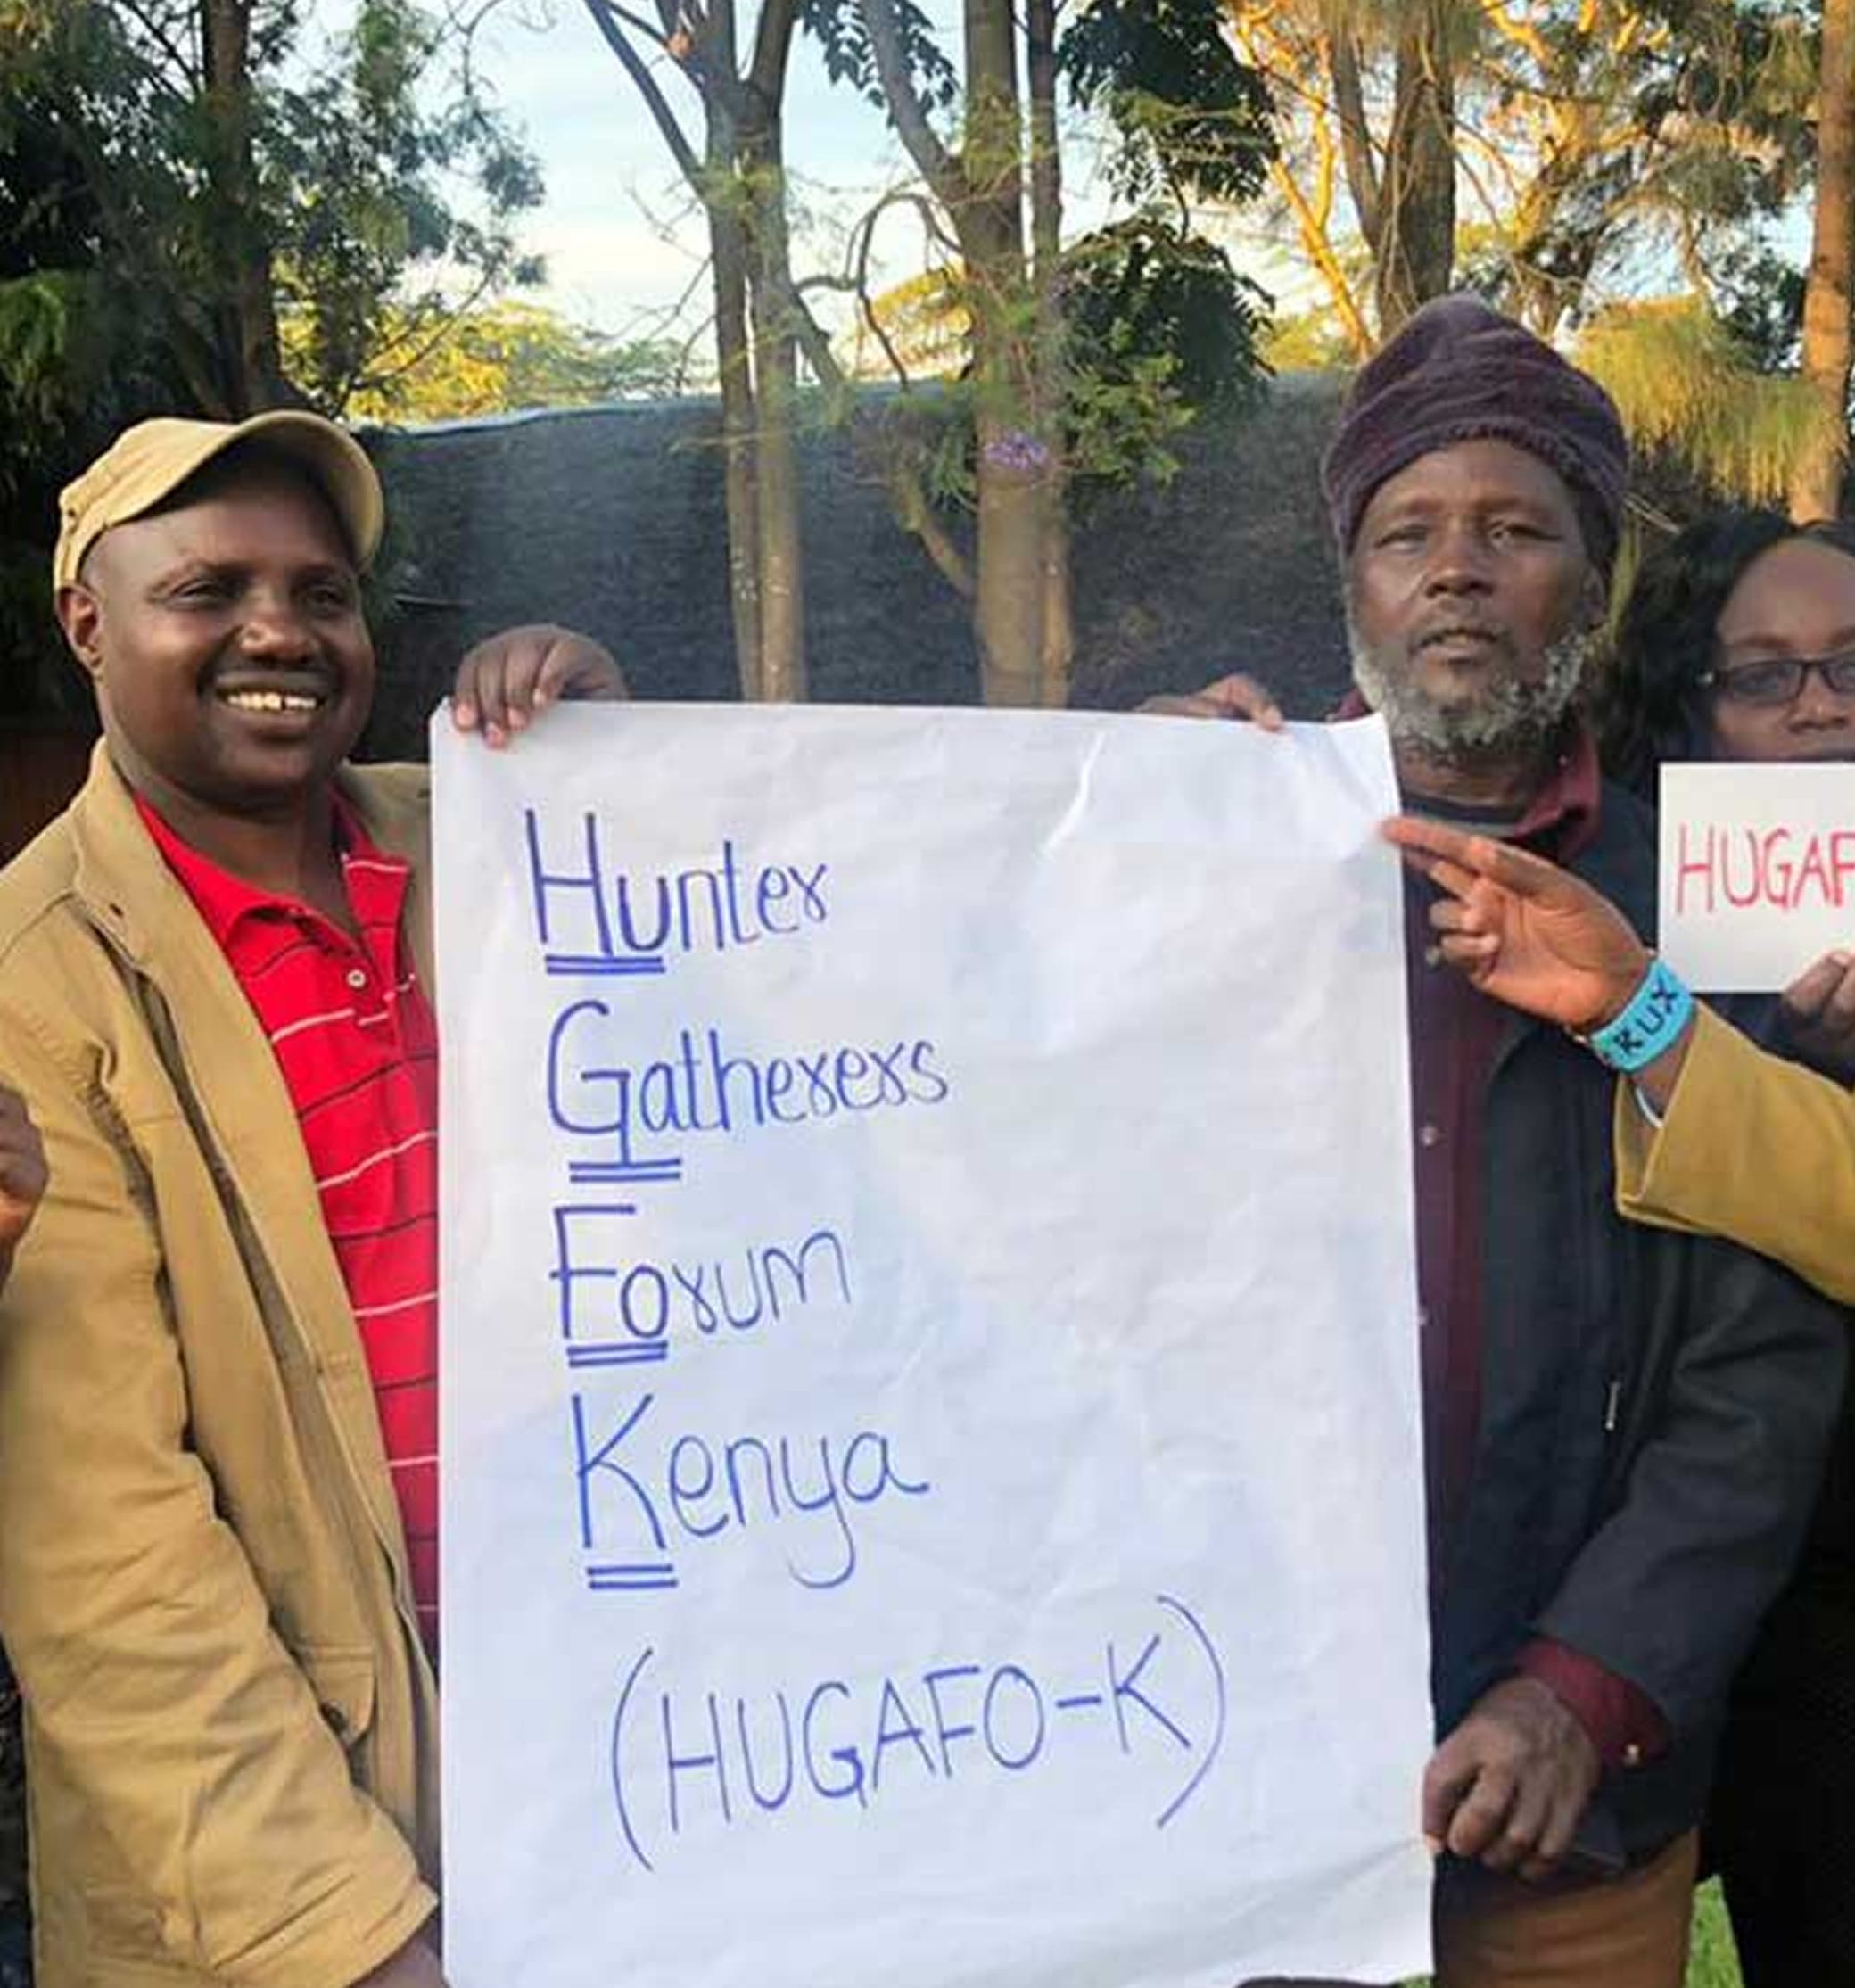 Hunter
Gatherers
Forum
Kenya
(HUGAFO-K)
HUGAF
RUX